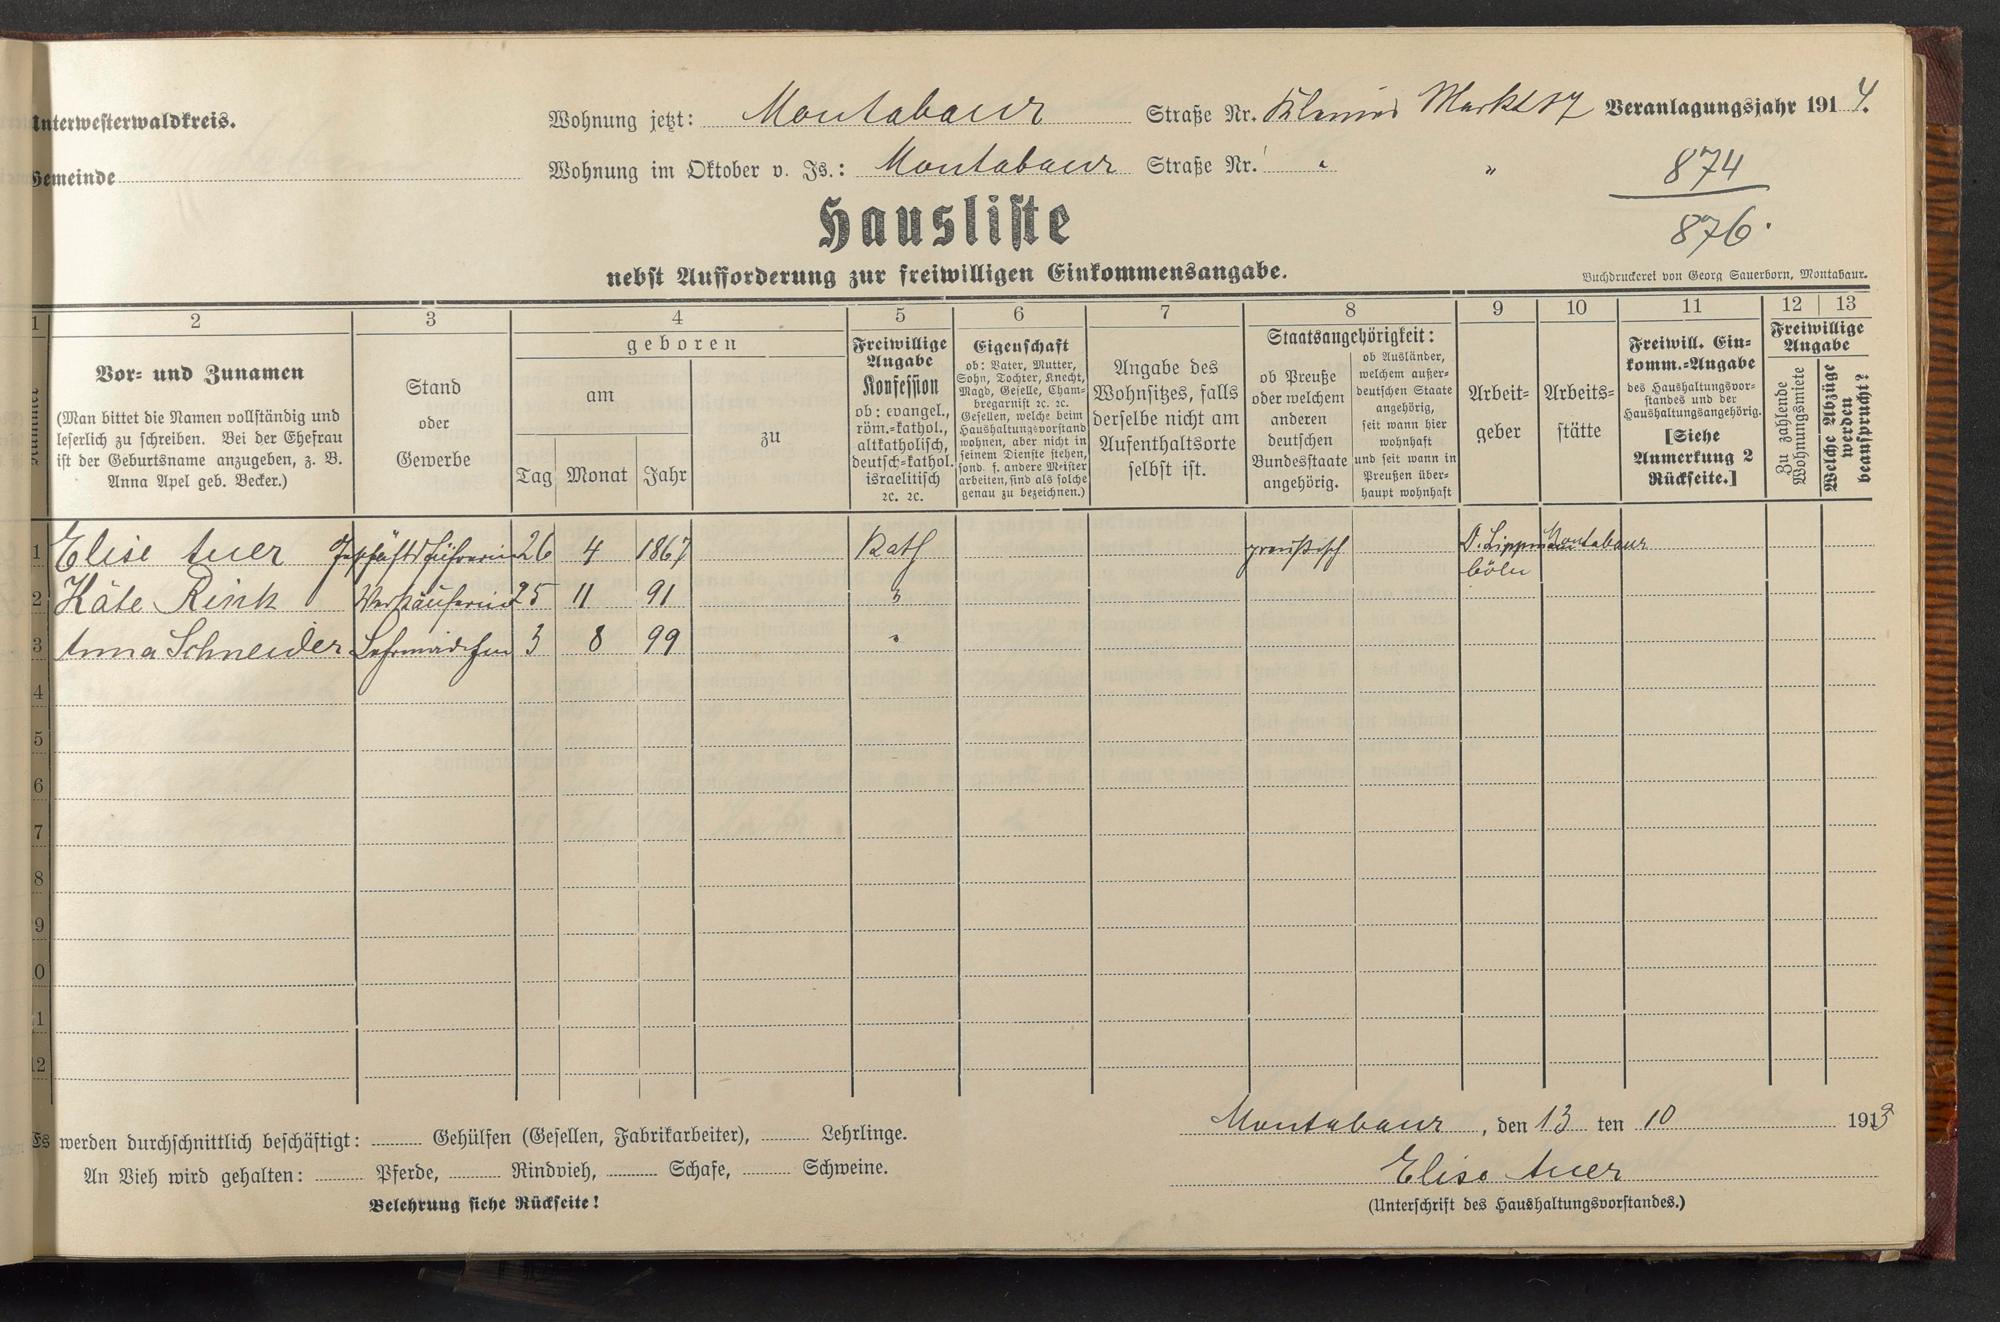 Unterwesterwaldkreis.
Wohnung jetzt: Montabaur Straße Nr. Kleiner Markt 17 Veranlagungsjahr 1914.
Gemeinde
Wohnung im Oktober v. Js.: Montabaur Straße Nr. " "
874
876.
Hausliste
nebst Aufforderung zur freiwilligen Einkommensangabe.
Buchdruckerei von Georg Sauerborn, Montabaur.
1 2 3 4 5 6 7 8 9 10 11 12 13
Nummer
Vor- und Zunamen
(Man bittet die Namen vollständig und
leserlich zu schreiben. Bei der Ehefrau
ist der Geburtsname anzugeben, z. B.
Anna Apel geb. Becker.)
Stand
oder
Gewerbe
geboren
am
Tag Monat Jahr
zu
Freiwillige
Angabe
Konfession
ob: evangel.,
röm.=kathol.,
altkatholisch,
deutsch=kathol.
israelitisch
ꝛc. ꝛc.
Eigenschaft
ob: Vater, Mutter,
Sohn, Tochter, Knecht,
Magd, Geselle, Cham-
bregarnist ꝛc. ꝛc.
Gesellen, welche beim
Haushaltungsvorstand
wohnen, aber nicht in
seinem Dienste stehen,
sond. f. andere Meister
arbeiten, sind als solche
genau zu bezeichnen.)
Angabe des
Wohnsitzes, falls
derselbe nicht am
Aufenthaltsorte
selbst ist.
Staatsangehörigkeit:
ob Preuße
oder welchem
anderen
deutschen
Bundesstaate
angehörig.
ob Ausländer,
welchem außer-
deutschen Staate
angehörig,
seit wann hier
wohnhaft
und seit wann in
Preußen über-
haupt wohnhaft
Arbeit-
geber
Arbeits-
stätte
Freiwill. Ein-
komm.-Angabe
des Haushaltungsvor-
standes und der
Haushaltungsangehörig.
[Siehe
Anmerkung 2
Rückseite.]
Freiwillige
Angabe
Zu zahlende
Wohnungsmiete
Welche Abzüge
werden
beansprucht?
1 Elise Auer Geschäftsführerin 26 4 1867 Kath preußisch Montabaur
Cöln
2 Käte Rink Verkäuferin 25 11 91 "
3 Anna Schneider Lehrmädchen 3 8 99 "
4
5
6
7
8
9
10
11
12
Es werden durchschnittlich beschäftigt: Gehülfen (Gesellen, Fabrikarbeiter), Lehrlinge.
An Vieh wird gehalten: Pferde, Rindvieh, Schafe, Schweine.
Belehrung siehe Rückseite!
Montabaur, den 13 ten 10 1913
Elise Auer
(Unterschrift des Haushaltungsvorstandes.)